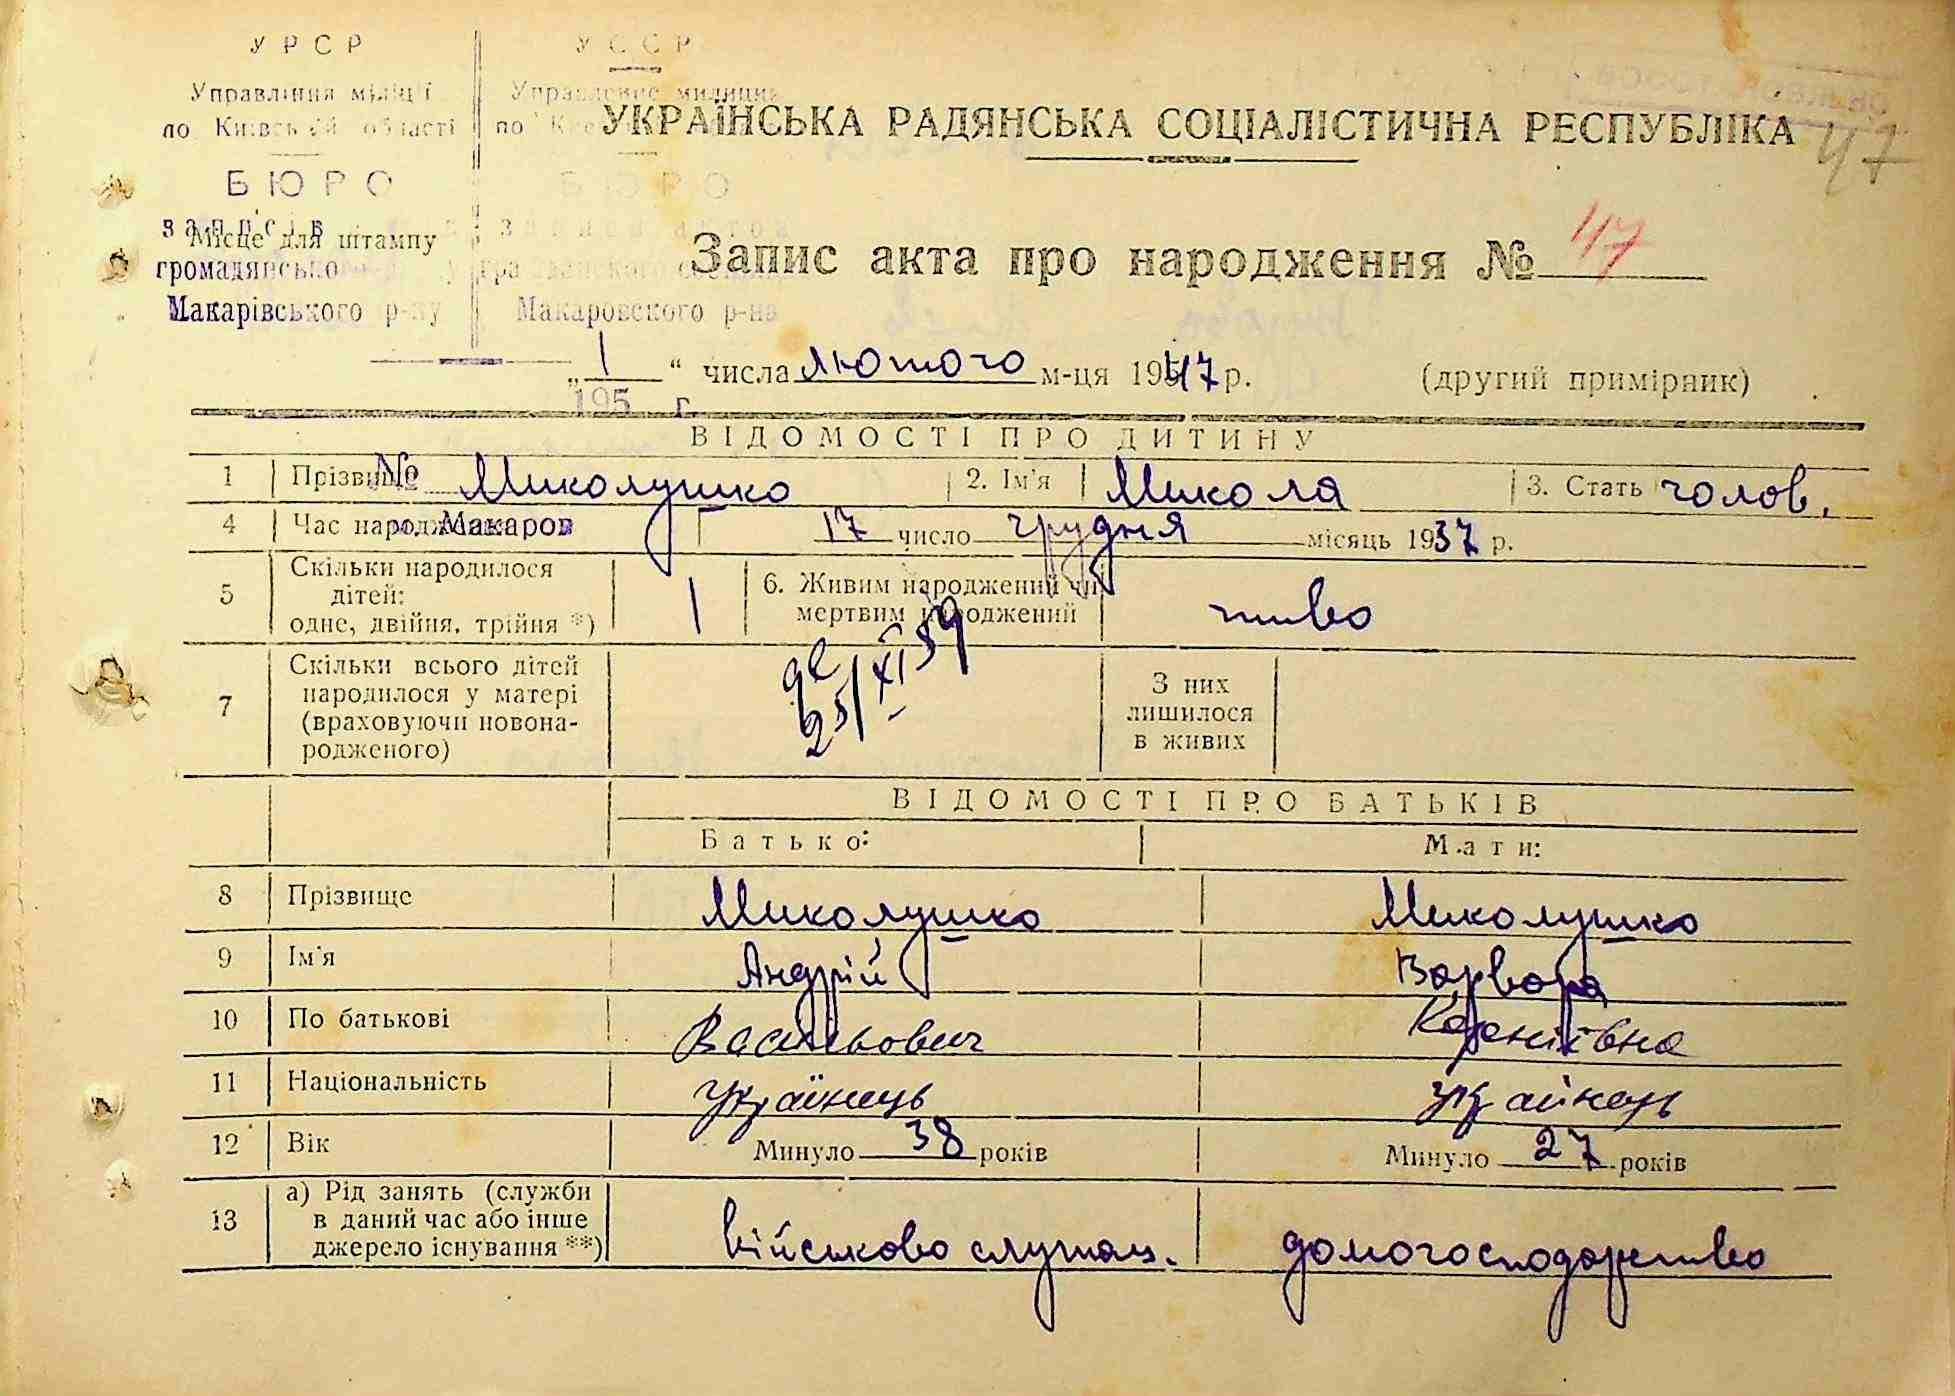 УРСР
Управління міліції
по Київській області
БЮРО
записів
громадянсько
Макарівського р-ну
УССР
Управление милиции
по
БЮРО
записи актов
гражданского
Макаровского р-на
195 г.
№
м. Макаров
Місце для штампу
УКРАЇНСЬКА РАДЯНСЬКА СОЦІАЛІСТИЧНА РЕСПУБЛІКА
47
Запис акта про народження № 47
„ 1 “ числа лютого м-ця 1947 р. (другий примірник)
ВІДОМОСТІ ПРО ДИТИНУ
1 Прізвище Миколушко 2. Ім'я Микола 3. Стать чолов.
4 Час народження 17 число грудня місяць 1937 р.
5 Скільки народилося дітей: одне, двійня, трійня *) 1 6. Живим народжений чи мертвим народжений живо
7 Скільки всього дітей народилося у матері (враховуючи новонародженого) З них лишилося в живих
25/XI 59
ВІДОМОСТІ ПРО БАТЬКІВ
Батько: Мати:
8 Прізвище Миколушко Миколушко
9 Ім'я Андрій Варвара
10 По батькові Васильович Корніївна
11 Національність українець українець
12 Вік Минуло 38 років Минуло 27 років
13 а) Рід занять (служби в даний час або інше джерело існування **) військово служащ. домогосподарство